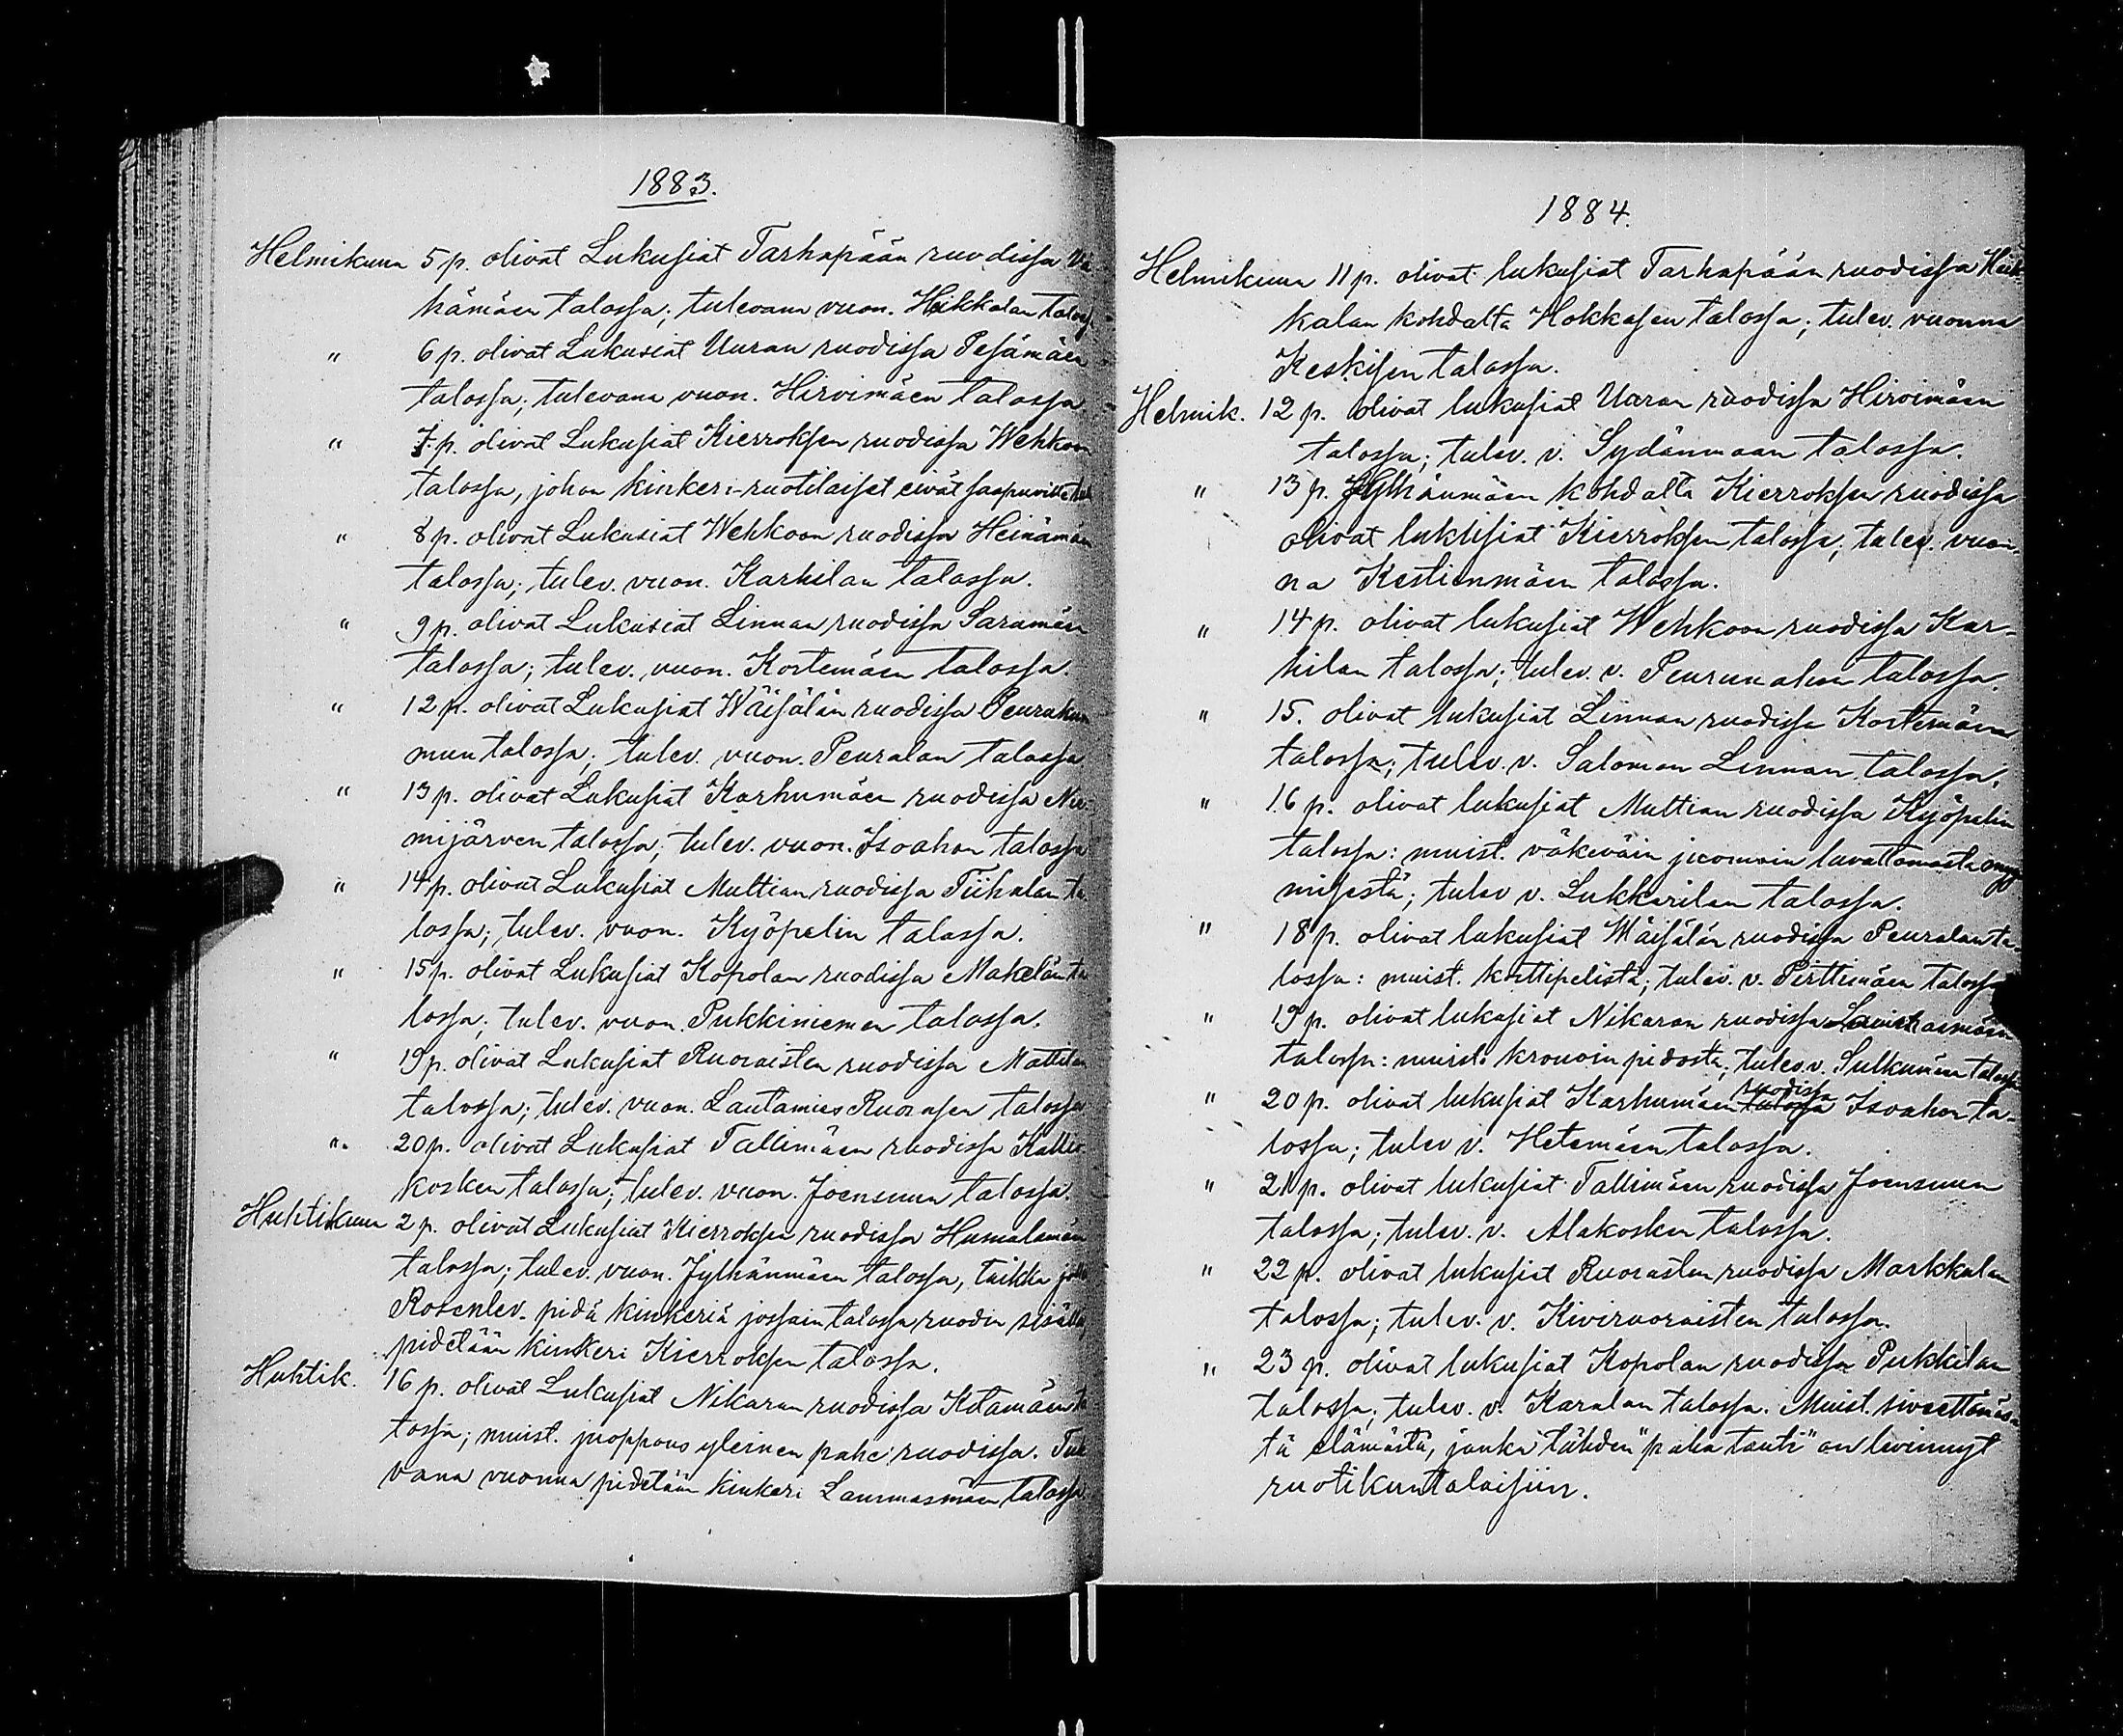 1883.
Helmikuun 5 p. olivat Lukusiat Tarhapään ruodissa Vä-
hämäen talossa; tulevana vuon. Heikkalan taloss
" 6 p. olivat Lukusiat Uuran ruodissa Pesämäen
talossa; tulevana vuon. Hirvimäen talossa
" 7 p. olivat Lukusiat Kierroksen ruodissa Wehkoon
talossa, johon kinkeri-ruotilaiset eivät saapuville
" 8 p. olivat Lukusiat Wehkoon ruodissa Heinämäen
talossa; tulev. vuon. Karhilan talossa.
" 9 p. olivat Lukusiat Linnan ruodissa Saramäen
talossa; tulev. vuon. Kortemäen talossa.
" 12 p. olivat Lukusiat Wäisälän ruodissa Peurakum
mun talossa; tulev. vuon. Peuralan talossa
" 13 p. olivat Lukusiat Karhumäen ruodissa Nie-
mijärven talossa; tulev. vuon. Isoahon talossa
" 14 p. olivat Lukusiat Multian ruodissa Tiihalan ta
lossa; tulev. vuon. Kyöpelin talossa.
" 15 p. olivat Lukusiat Kopolan ruodissa Mäkelän ta
lossa; tulev. vuon. Pukkiniemen talossa.
" 19 p. olivat Lukusiat Ruoraisten ruodissa Mattilan
talossa; tulev. vuon. Lautamies Ruorasen talossa
" 20 p. olivat Lukusiat Tallimäen ruodissa Kallio
kosken talossa; tulev. vuon. Joensuun talossa.
Huhtikuun 2 p. olivat Lukusiat Kierroksen ruodissa Humalamäen
talossa; tulev. vuon. Jylhänmäen talossa, taikka jollei
Rosenlev. pidä kinkeriä jossain talossa ruodin sisällä,
pidetään kinkeri Kierroksen talossa.
Huhtik. 16 p. olivat Lukusiat Nikaran ruodissa Kotamäen ta
lossa; muist. juoppous yleinen pahe ruodissa. Tule
vana vuonna pidetään kinkeri Lammasmäen talossa.
1884.
Helmikuun 11 p. olivat lukusiat Tarhapään ruodissa Heik-
kalan kohdalta Hokkasen talossa; tulev. vuonna
Keskisen talossa.
Helmik. 12 p. olivat lukusiat Uuran ruodissa Hirvimäen
talossa; tulev. v. Sydänmaan talossa.
" 13 p. Jylhänmäen kohdalta Kierroksen ruodissa
olivat lukusiat Kierroksen talossa; tulev. vuon-
na Kestinmäen talossa.
" 14 p. olivat lukusiat Wehkoon ruodissa Kar-
hilan talossa; tulev. v. Peurunahon talossa.
" 15. olivat lukusiat Linnan ruodissa Kortemäen
talossa; tulev. v. Salomon Linnan talossa.
" 16 p. olivat lukusiat Multian ruodissa Kyöpelin
talossa: muist. väkeväin juomain luvattomasta myy
misestä; tulev v. Lukkarilan talossa.
" 18 p. olivat lukusiat Wäisälän ruodissa Peuralan ta-
lossa: muist. korttipelistä; tulev. v. Pirttimäen talossa
" 19 p. olivat lukusiat Nikaran ruodissa Lammasmäen
talossa: muist. krouvin pidosta; tulev. v. Sulkumäen talossa
" 20 p. olivat lukusiat Karhumäen talossa ruodissa Isoahon ta-
lossa; tulev v. Hetemäen talossa.
" 21 p. olivat lukusiat Tallimäen ruodissa Joensuun
talossa; tulev. v. Alakosken talossa.
" 22 p. olivat lukusiat Ruorasten ruodissa Markkulan
talossa; tulev. v. Kiviruoraisten talossa.
" 23 p. olivat lukusiat Kopolan ruodissa Pukkilan
talossa; tulev. v. Karalan talossa. Muist. siveettömäs-
tä elämästä, jonka tähden "paha tauti" on levinnyt
ruotikuntalaisiin.